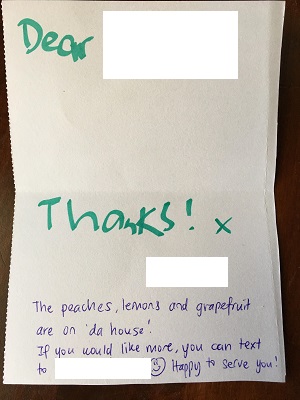 Dear
Thanks! x
The peaches, lemons and grapefruit
are on 'da house'!
If you would like more, you can text
to Happy to serve you!